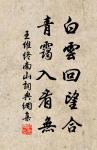 白雲回望合
青靄入看無
王維終南山詞典網集